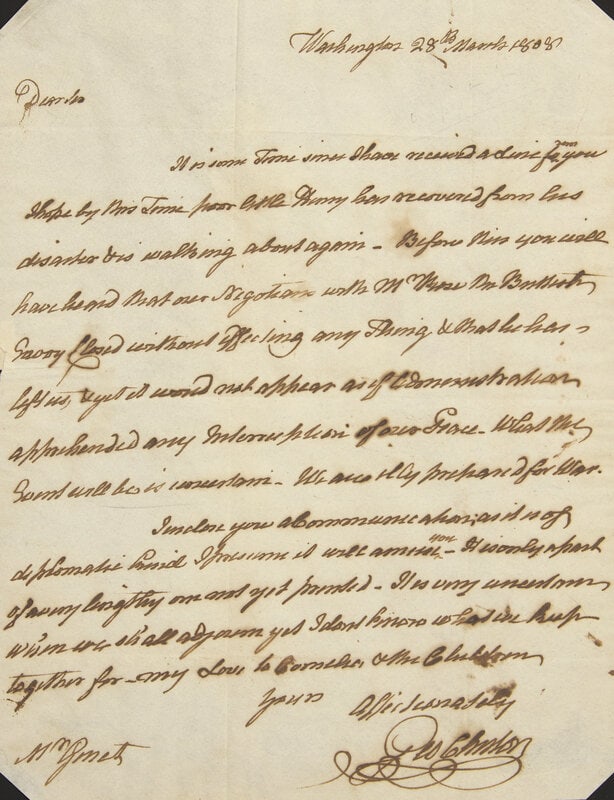 Washington 28th March 1808
Dear Sir
It is some Time since I have received a Line from you
I hope by this Time poor little Henry has recovered from his
disaster & is walking about again - Before this you will
have heard that our Negotiation with Mr Rose the British
Envoy Closed without effecting any Thing & that he has
left us, & yet it would not appear as if Administration
apprehended any Interruption of our Peace - What the
Event will be is uncertain - We are illy prepared for War.
I inclose you a Communication, as it is of
diplomatic kind I presume it will amuse you - It is only a part
of a very lengthy one not yet printed - It is very uncertain
when we shall adjourn yet I dont know what we keep
together for - my Love to Cornelia & the Children
Yours Affectionately
Geo Clinton
Mr Genet